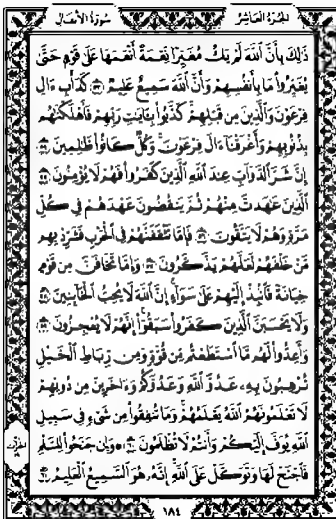 الجزء العاشر سورة الأنفال
ذَٰلِكَ بِأَنَّ ٱللَّهَ لَمْ يَكُ مُغَيِّرًا نِّعْمَةً أَنْعَمَهَا عَلَىٰ قَوْمٍ حَتَّىٰ
يُغَيِّرُوا۟ مَا بِأَنفُسِهِمْ وَأَنَّ ٱللَّهَ سَمِيعٌ عَلِيمٌ ٥٣ كَدَأْبِ ءَالِ
فِرْعَوْنَ وَٱلَّذِينَ مِن قَبْلِهِمْ كَذَّبُوا۟ بِـَٔايَـٰتِ رَبِّهِمْ فَأَهْلَكْنَـٰهُم
بِذُنُوبِهِمْ وَأَغْرَقْنَآ ءَالَ فِرْعَوْنَ وَكُلٌّ كَانُوا۟ ظَـٰلِمِينَ ٥٤
إِنَّ شَرَّ ٱلدَّوَآبِّ عِندَ ٱللَّهِ ٱلَّذِينَ كَفَرُوا۟ فَهُمْ لَا يُؤْمِنُونَ ٥٥
ٱلَّذِينَ عَـٰهَدتَّ مِنْهُمْ ثُمَّ يَنقُضُونَ عَهْدَهُمْ فِى كُلِّ
مَرَّةٍ وَهُمْ لَا يَتَّقُونَ ٥٦ فَإِمَّا تَثْقَفَنَّهُمْ فِى ٱلْحَرْبِ فَشَرِّدْ بِهِم
مَّنْ خَلْفَهُمْ لَعَلَّهُمْ يَذَّكَّرُونَ ٥٧ وَإِمَّا تَخَافَنَّ مِن قَوْمٍ
خِيَانَةً فَٱنۢبِذْ إِلَيْهِمْ عَلَىٰ سَوَآءٍ إِنَّ ٱللَّهَ لَا يُحِبُّ ٱلْخَآئِنِينَ ٥٨
وَلَا يَحْسَبَنَّ ٱلَّذِينَ كَفَرُوا۟ سَبَقُوٓا۟ إِنَّهُمْ لَا يُعْجِزُونَ ٥٩
وَأَعِدُّوا۟ لَهُم مَّا ٱسْتَطَعْتُم مِّن قُوَّةٍ وَمِن رِّبَاطِ ٱلْخَيْلِ
تُرْهِبُونَ بِهِۦ عَدُوَّ ٱللَّهِ وَعَدُوَّكُمْ وَءَاخَرِينَ مِن دُونِهِمْ
لَا تَعْلَمُونَهُمُ ٱللَّهُ يَعْلَمُهُمْ وَمَا تُنفِقُوا۟ مِن شَىْءٍ فِى سَبِيلِ
ٱللَّهِ يُوَفَّ إِلَيْكُمْ وَأَنتُمْ لَا تُظْلَمُونَ ٦٠ وَإِن جَنَحُوا۟ لِلسَّلْمِ
فَٱجْنَحْ لَهَا وَتَوَكَّلْ عَلَى ٱللَّهِ إِنَّهُۥ هُوَ ٱلسَّمِيعُ ٱلْعَلِيمُ ٦١
١٨٤